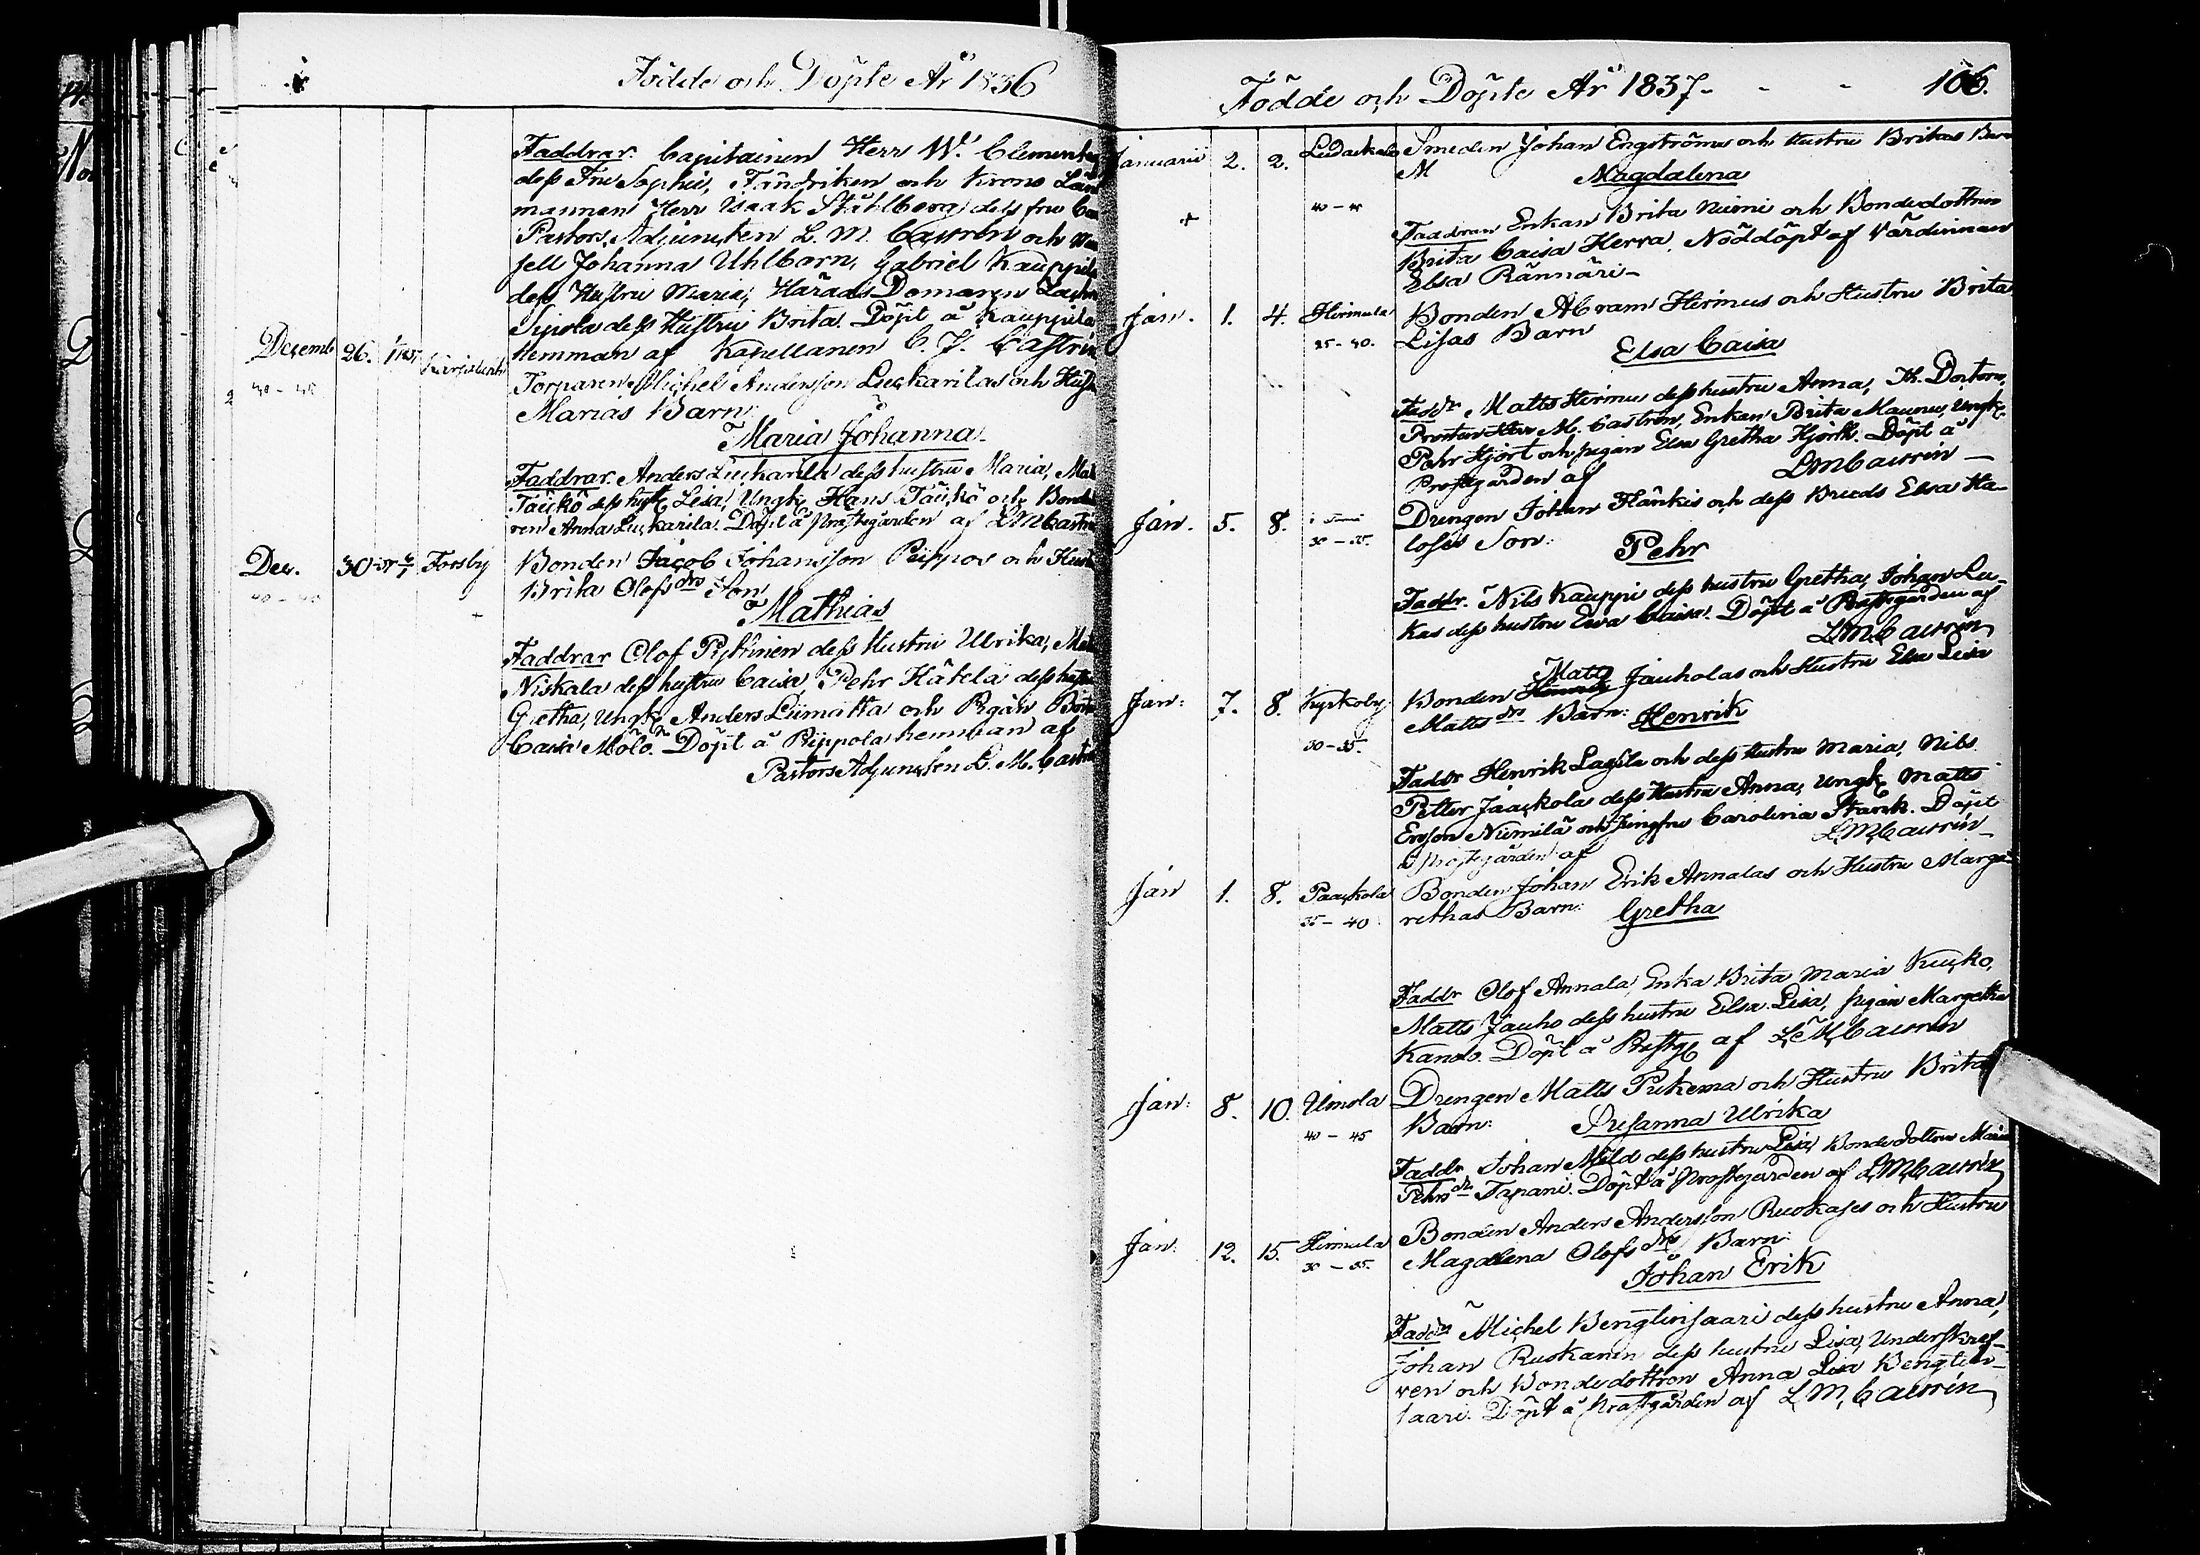 Födde och Döpte År 1836
Faddrar. Capitainen Herr W. Clementeg
dess Fru Sophie, Fändriken och Krono Län
mannen Herr Isaak Ståhlberg dess fru Ca
Pastors Adjuncten L. M. Castrén och Ma
sell Johanna Uhlbarn, Gabriel Kauppila
dess Hustru Maria, Härads Domaren Zach
Sipola dess Hustru Brita. Döpt å Kauppila
Hemman af Kapellanen C. J. Castrén
Decemb 26. 1/1 1837
40 - 45
Torparen Michel Andersson Luckarilas och Hust
Marias Barn:
Maria Johanna
Faddrar. Anders Luckarila dess hustru Maria, Mat
Täickö dess hust. Lisa, Ungk. Hans Täickö och Bonde
ren Anna Luckarila. Döpt å Prostegården af LMCastré
Dec. 30 Forsby Bonden Jacob Johansson Piippos och Hust
40 - 45 Brita Olofsdrs Son
+ Mathias
Faddrar Olof Pyhtinen dess Hustru Ulrika, Mat
Niskala dess hustru Caisa Pehr Häkla dess hust
Gretha, Ungk. Anders Liimatta och Pigan Brita
Caisa Mölö. Döpt å Piippola hemman af
Pastors Adjuncten L. M. Castré
Födde och Döpte År 1837 - - - 106.
Januarii 2. 2. Smeden Johan Engströms och Hustru Britas Barn
M Magdalena
40 - 45
+ Faddrar Enkan Brita Niemi och Bondedottren
Brita Caisa Herva. Nöddöpt af Värdinnan
Elsa Rännäri -
Jan. 1. 4. Hirmula Bonden Abram Hirmus och Hustru Brita
35 - 40. Lisas Barn
Elsa Caisa
Faddr Matts Hirmu dess hustru Anna, Th. Doctorn,
Prosten Herr M. Castrén, Enkan Brita Maunu, Ungk.
Pehr Hjort och pigan Elsa Gretha Hjorth. Döpt å
Prostgården af LMCastrén -
Jan. 5. 8. Drengen Johan Hänkis och dess Bruds Elsa Ha-
30 - 35. loses Son: Pehr
Faddr. Nils Kauppi dess hustru Gretha, Johan Lu-
kas dess hustru Ewa Caisa. Döpt å Prostegården af
LMCastrén
Matts
Jan: 7. 8. Kyrkoby Bonden Jauholas och Hustru Elsa Lisa
30 - 35. Mattsdrs Barn: Henrik
Faddr Henrik Lassila och dess Hustru Maria, Nils
Petter Jaackola dess Hustru Anna, Ungk. Matts
Ersson Niemilä och Jungfru Carolina Starck. Döpt
å Prostegården af LMCastrén -
Jan 1. 8. Paackola Bonden Johan Erik Annalas och Hustru Marga-
35 - 40 rethas Barn: Gretha
Faddr Olof Annala, Enka Brita Maria Kucko,
Matts Jauho dess hustru Elsa Lisa, pigan Margetha
Kando. Döpt å Prostg. af LMCastrén
Jan: 8. 10. Uimola Drengen Matts Pukema och Hustru Britas
40 - 45 Barn: Susanna Ulrika
Faddr Johan Mild dess hustru Lisa, Bonde dottren Maria
Pehrsdr Tapani. Döpt å Prostegården af LMCastrén
Jan: 12. 15. Hirmula Bonden Anders Andersson Ruokases och Hustru
30 - 35. Magdalena Olofsdrs Barn:
Johan Erik
Faddr Michel Bengtinsaari dess hustru Anna,
Johan Ruskanen dess hustru Lisa, Underskref-
ven och Bondedottren Anna Lisa Bengtin-
saari. Döpt å Prostgården af LMCastrén